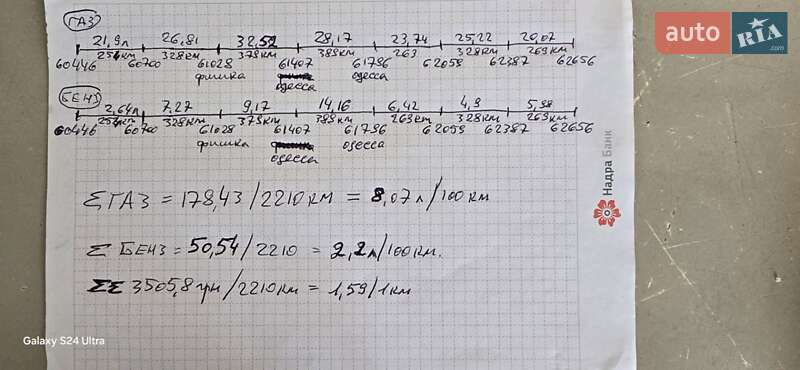 ГАЗ
21,9л 26,81 32,52 28,17 23,74 25,22 20,07
254км 328км 379км 389км 263 328км 269км
60446 60700 61028 61407 61796 62059 62387 62656
фишка одесса одесса
БЕНЗ
2,64л 7,27 9,17 14,16 6,42 4,9 5,98
254км 328км 379км 389км 263км 328км 269км
60446 60700 61028 61407 61796 62059 62387 62656
фишка одесса одесса
ΣГАЗ = 178,43/2210 км = 8,07 л/100 км
Σ БЕНЗ = 50,54/2210 = 2,2л/100км.
ΣΣ 3505,8 грн/2210км = 1,59/1км
Надра Банк
auto RIA.com
Galaxy S24 Ultra